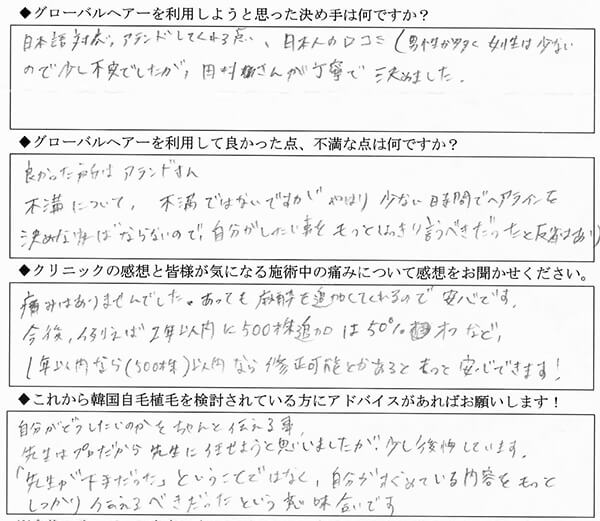 ◆グローバルヘアーを利用しようと思った決め手は何ですか？
日本語対応、アテンドしてくれる点、日本人の口コミ(男性が多く女性は少ない
ので少し不安でしたが、さんが丁寧で決めました。
◆グローバルヘアーを利用して良かった点、不満な点は何ですか？
良かった所はアテンドさん
不満について、不満ではないですがやはり少ない時間でヘアラインを
決めなければならないので、自分がしたい事をもっとはっきり言うべきだったと反省はあり
◆クリニックの感想と皆様が気になる施術中の痛みについて感想をお聞かせください。
痛みはありませんでした。あっても麻酔を追加してくれるので安心です。
今後、例えば2年以内に500株追加は50%オフなど、
1年以内なら(500株)以内なら修正可能とかあるともっと安心できます！
◆これから韓国自毛植毛を検討されている方にアドバイスがあればお願いします！
自分がどうしたいのかをちゃんと伝える事。
先生はプロだから先生に任せようと思いましたが少し後悔しています。
「先生が下手だった」ということではなく、自分がきめている内容をもっと
しっかり伝えるべきだったという意味合いです